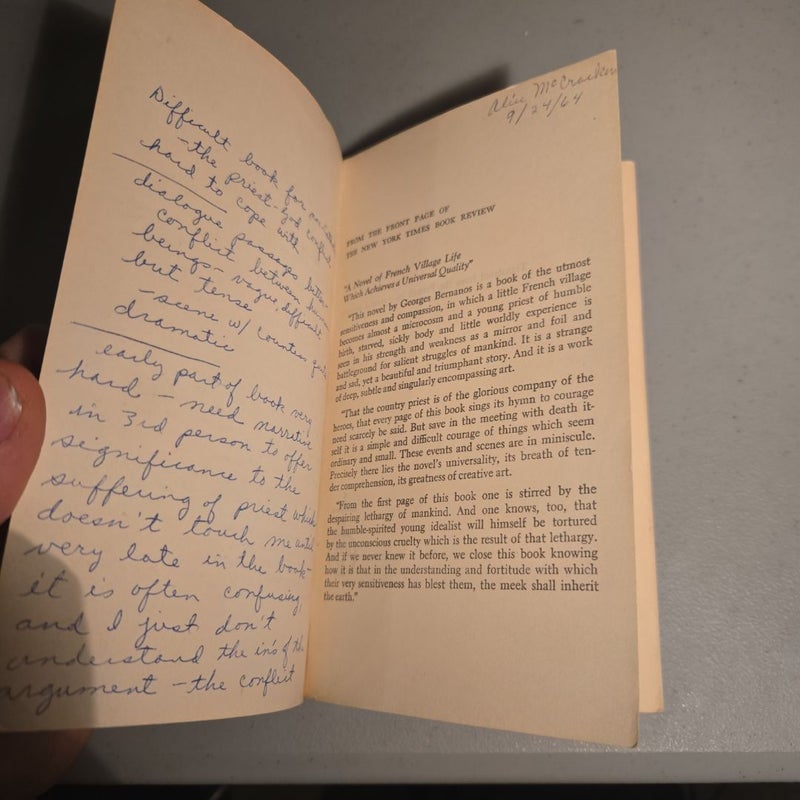 Difficult book for
-the priest-God conflict
hard to cope with
dialogue passages
conflict between human
beings- vague, difficult
but tense
-scene w/ countess quite
dramatic
early part of book very
hard - need narrative
in 3rd person to offer
significance to the
suffering of priest which
doesn't touch me until
very late in the book-
it is often confusing
and I just don't
understand the in's of the
argument - the conflict
Alice McCracken
9/24/64
FROM THE FRONT PAGE OF
THE NEW YORK TIMES BOOK REVIEW
"A Novel of French Village Life
Which Achieves a Universal Quality"
"This novel by Georges Bernanos is a book of the utmost
sensitiveness and compassion, in which a little French village
becomes almost a microcosm and a young priest of humble
birth, starved, sickly body and little worldly experience is
seen in his strength and weakness as a mirror and foil and
battleground for salient struggles of mankind. It is a strange
and sad, yet a beautiful and triumphant story. And it is a work
of deep, subtle and singularly encompassing art.
"That the country priest is of the glorious company of the
heroes, that every page of this book sings its hymn to courage
need scarcely be said. But save in the meeting with death it-
self it is a simple and difficult courage of things which seem
ordinary and small. These events and scenes are in miniscule.
Precisely there lies the novel's universality, its breath of ten-
der comprehension, its greatness of creative art.
"From the first page of this book one is stirred by the
despairing lethargy of mankind. And one knows, too, that
the humble-spirited young idealist will himself be tortured
by the unconscious cruelty which is the result of that lethargy.
And if we never knew it before, we close this book knowing
how it is that in the understanding and fortitude with which
their very sensitiveness has blest them, the meek shall inherit
the earth."